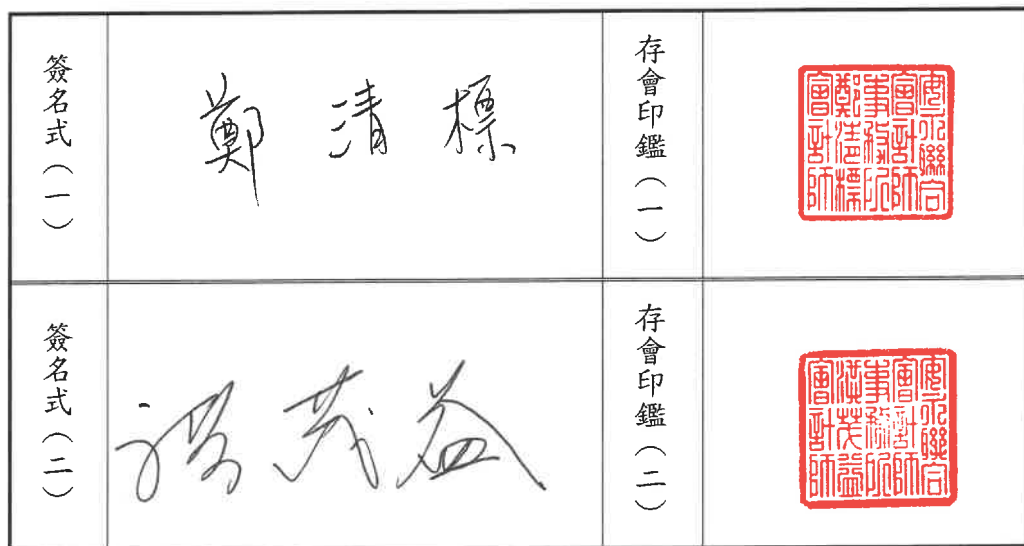 簽名式（一）
鄭清標
存會印鑑（一）
安永聯合會計師事務所鄭清標會計師
簽名式（二）
黃茂益
存會印鑑（二）
安永聯合會計師事務所黃茂益會計師